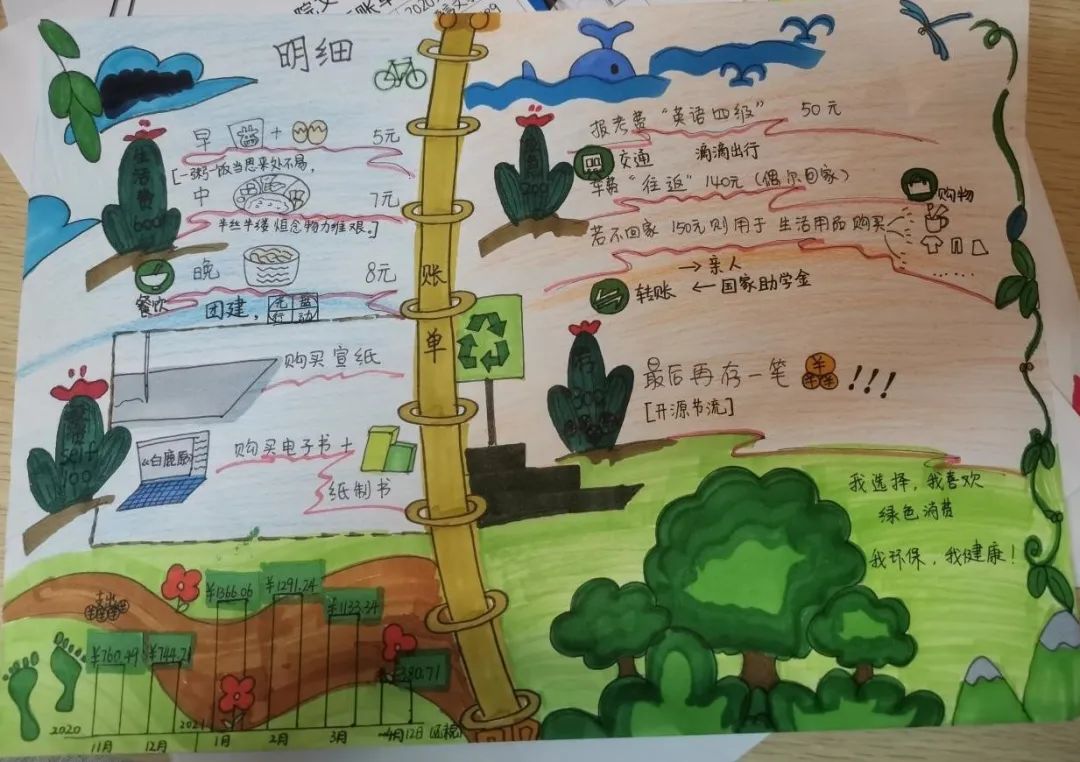 2020
明细
早 + 5元
[一粥一饭当思来处不易,
中 7元
半丝半缕 恒念物力维艰。]
晚 8元
餐饮
团建, 光盘行动
生活费
600
购买宣纸
self
100
《白鹿原》
购买电子书+
纸制书
支出
¥760.49
¥744.21
¥1366.06
¥1291.24
¥1133.34
¥380.71
2020
11月
12月
2021
1月
2月
3月
4月12日
账单
报考费“英语四级” 50元
交通 滴滴出行
车费“往返”140元(偶尔回家)
购物
若不回家 150元则用于 生活用品购买
→亲人
转账 ←国家助学金
300
最后再存一笔 !!!
[开源节流]
我选择,我喜欢
绿色消费
我环保,我健康!